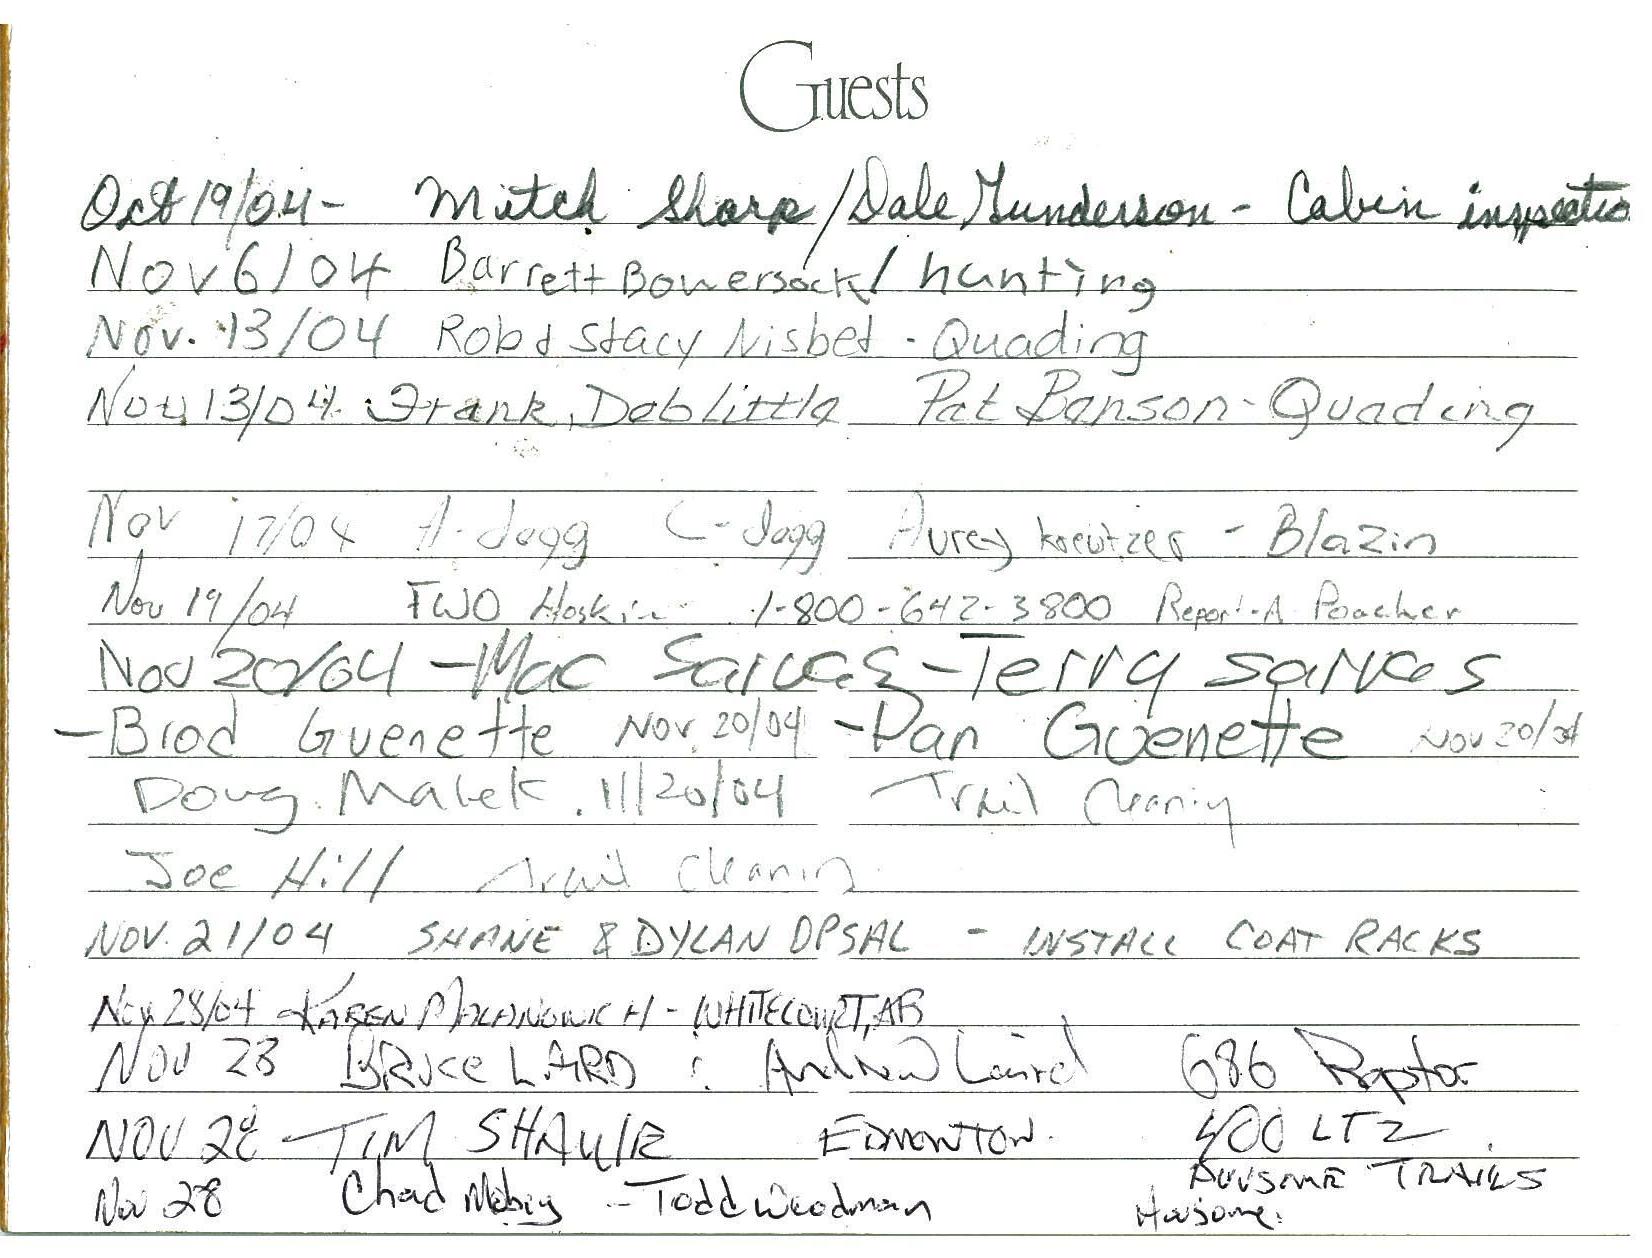 Guests
Oct 19/04 - Mitch Sharp / Dale Gunderson - Cabin inspectio
Nov 6/04 Barrett Bowersock / hunting
Nov. 13/04 Rob & Stacy Nisbet - Quading
Nov, 13/04 Frank, Deb Little Pat Banson - Quading
Nov 17/04 A-dogg C-dogg Aurey kreutzer - Blazin
Nov 19/04 FWO Hoskin 1-800-642-3800 Report-A Poacher
Nov 20/04 - Mac Sarvas - Terry Sarvas
- Brad Guenette Nov. 20/04 - Dan Guenette Nov 20/04
Doug Malek. 11/20/04 Trail Cleaning
Joe Hill Trail Cleaning
NOV. 21/04 SHANE & DYLAN OPSAL - INSTALL COAT RACKS
Nov 28/04 - KAREN MALANOWICH - WHITECOURT, AB
NOV 28 BRUCE LARD : Andrew Laird 686 Raptor
NOV 28 - TIM EDMONTON. 400 LTZ.
AWSOME TRAILS
Nov 28 Chad - Todd Woodman